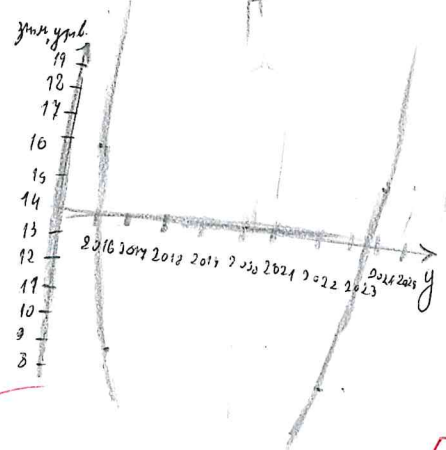 19
18
17
16
15
14
13
12
11
10
9
8
2016 2017 2018 2019 2020 2021 2022 2023 2024 2025
y